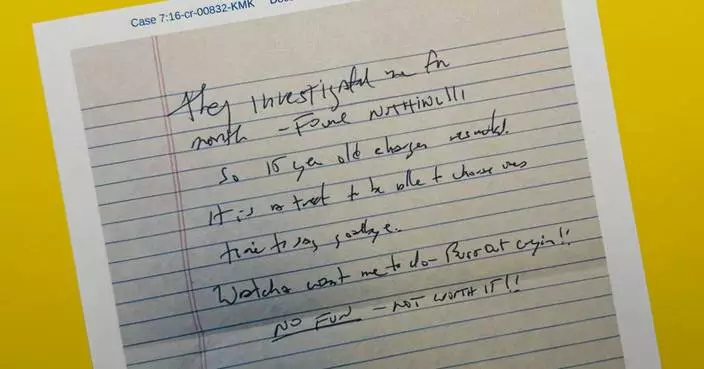 Case 7:16-cr-00832-KMK
They investigated me for
month – Found NOTHING!!!
So 15 year old charges resulted.
It is a treat to be able to choose ones
time to say goodbye.
Watcha want me to do – Burst out cryin!!
NO FUN – NOT WORTH IT!!